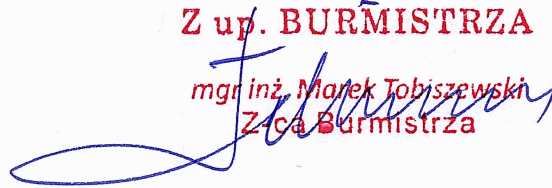 Z up. BURMISTRZA
mgr inż. Marek Tobiszewski
Z-ca Burmistrza